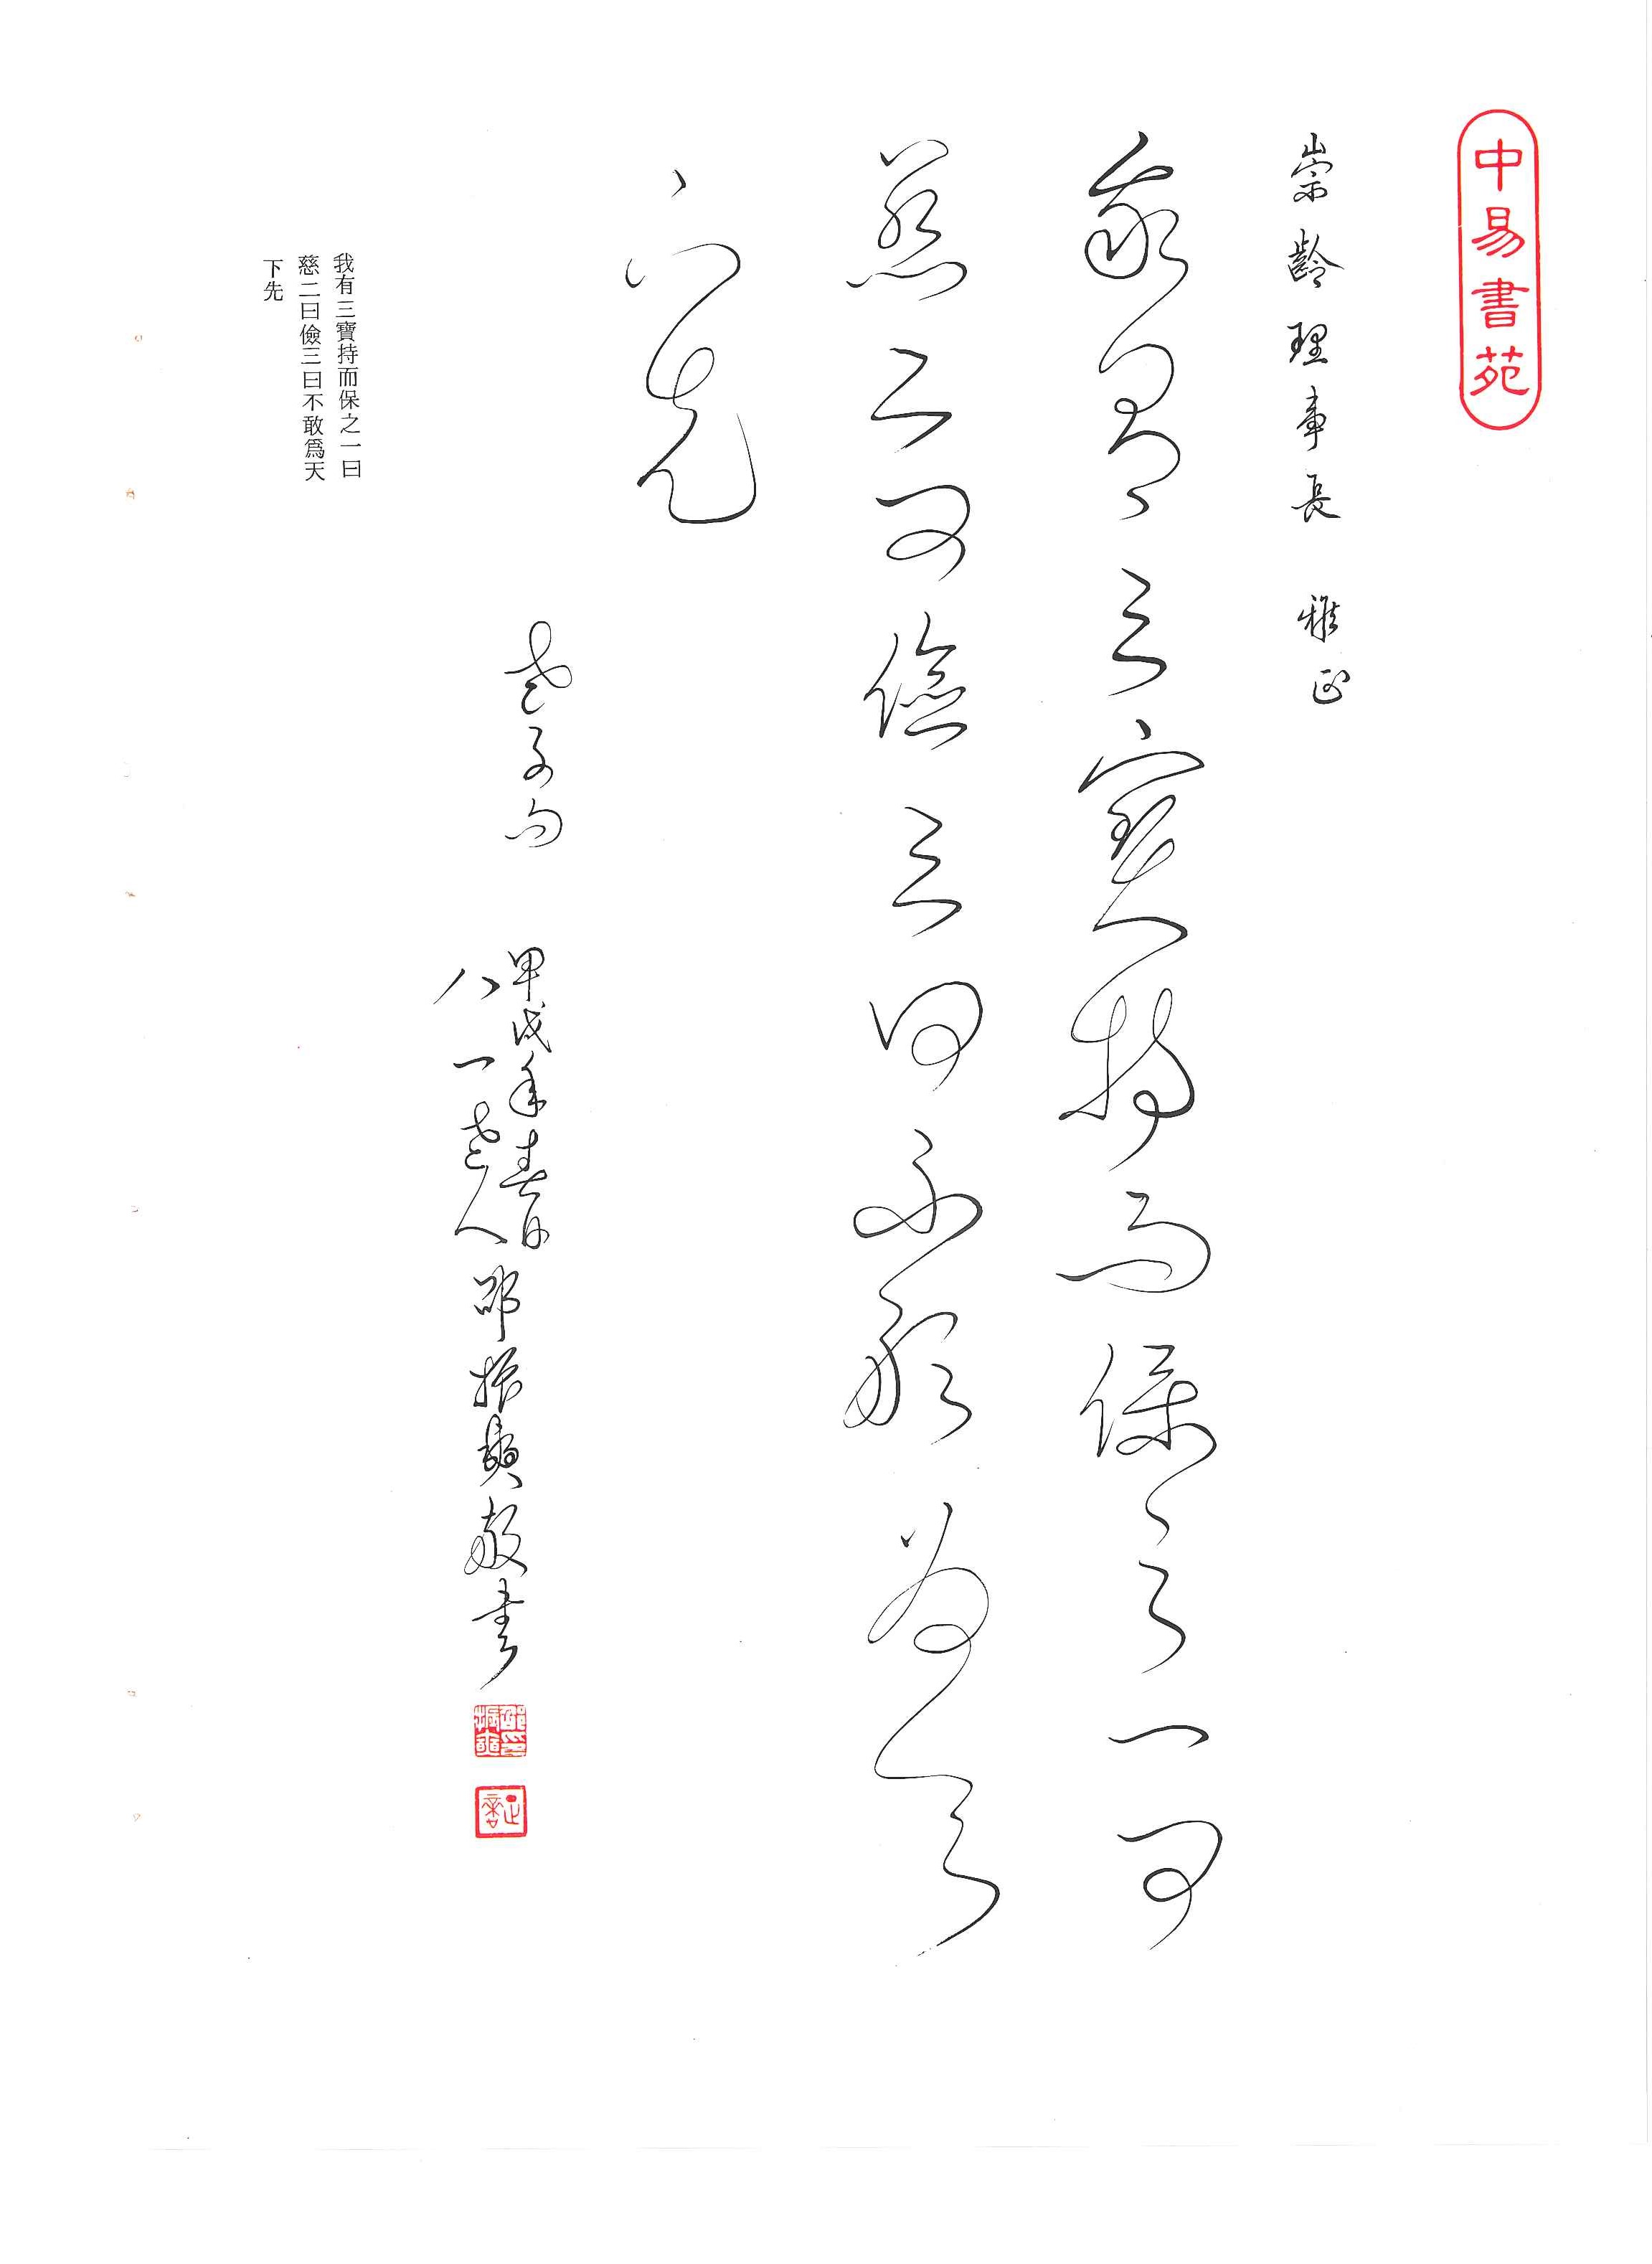 中易書苑
崇齡理事長 雅正
我有三寶持而保之一曰
慈二曰儉三曰不敢為天
下先
老子句
甲戌年春日
八一老人邵振賢敬書
我有三寶持而保之一曰
慈二曰儉三曰不敢爲天
下先